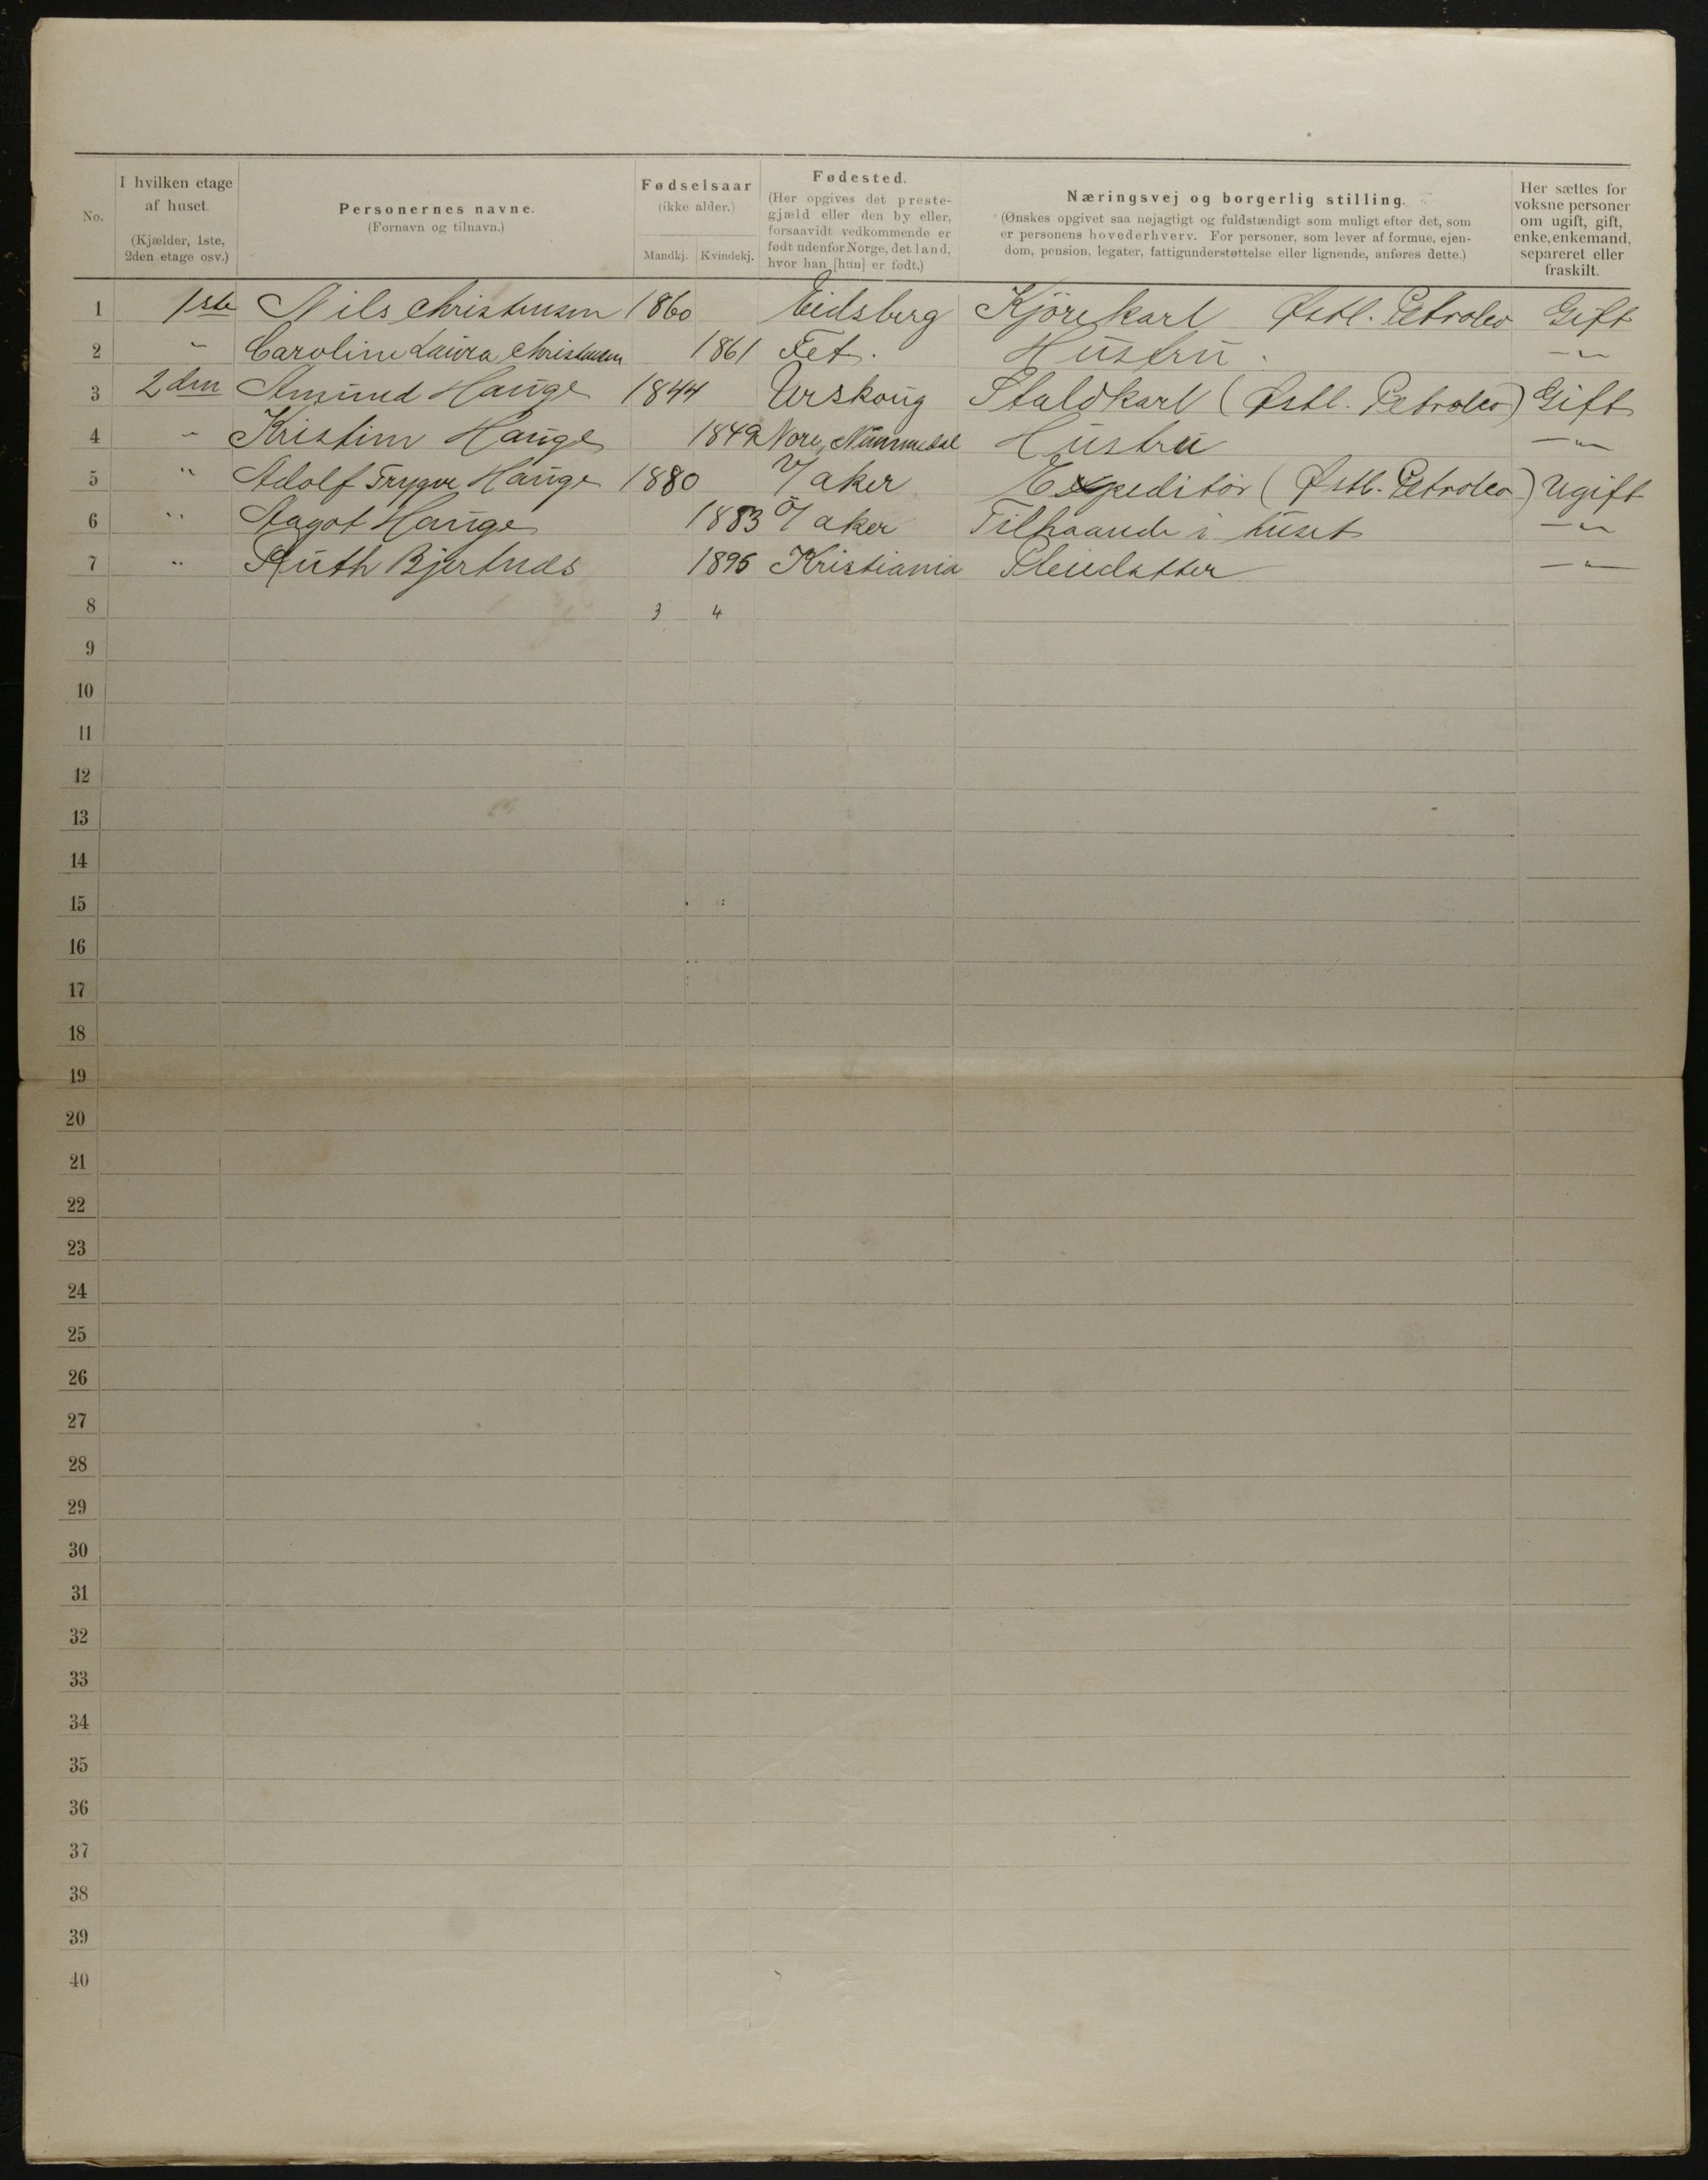 No.
I hvilken etage af huset. (Kjælder, 1ste, 2den etage osv.)
Personernes navne. (Fornavn og tilnavn.)
Fødselsaar (ikke alder.) Mandkj. Kvindekj.
Fødested. (Her opgives det prestegjæld eller den by eller, forsaavidt vedkommende er født udenfor Norge, det land, hvor han [hun] er født.)
Næringsvej og borgerlig stilling. (Ønskes opgivet saa nøjagtigt og fuldstændigt som muligt efter det, som er personens hovederhverv. For personer, som lever af formue, ejendom, pension, legater, fattigunderstøttelse eller lignende, anføres dette.)
Her sættes for voksne personer om ugift, gift, enke, enkemand, separeret eller fraskilt.
1 1ste Nils Christensen 1860 Eidsberg Kjørekarl Østl. Petroleo Gift
2 " Caroline Laura Christensen 1861 Fet. Hustru. —"—
3 2den Amund Hauge 1844 Urskoug Staldkarl (Østl. Petroleo) Gift
4 " Kristine Hauge 1849 Nore, Nummedal Hustru —"—
5 " Adolf Trygve Hauge 1880 V/aker Expeditør (Østl. Petroleo) Ugift
6 " Aagot Hauge 1883 Ø/aker Tilhaande i huset —"—
7 " Ruth Bjertnæs 1895 Kristiania Pleiedatter —"—
8 3 4
9
10
11
12
13
14
15
16
17
18
19
20
21
22
23
24
25
26
27
28
29
30
31
32
33
34
35
36
37
38
39
40